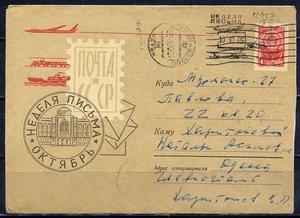 НЕДЕЛЯ
ПИСЬМА
ПОЧТА
СССР
Куда Мурманск-27
Павлова,
22 кв. 20
НЕДЕЛЯ ПИСЬМА
ОКТЯБРЬ
Кому Харитоновой
Наталье
Адрес отправителя Одесса
Главпочтамт
Харитонов В.